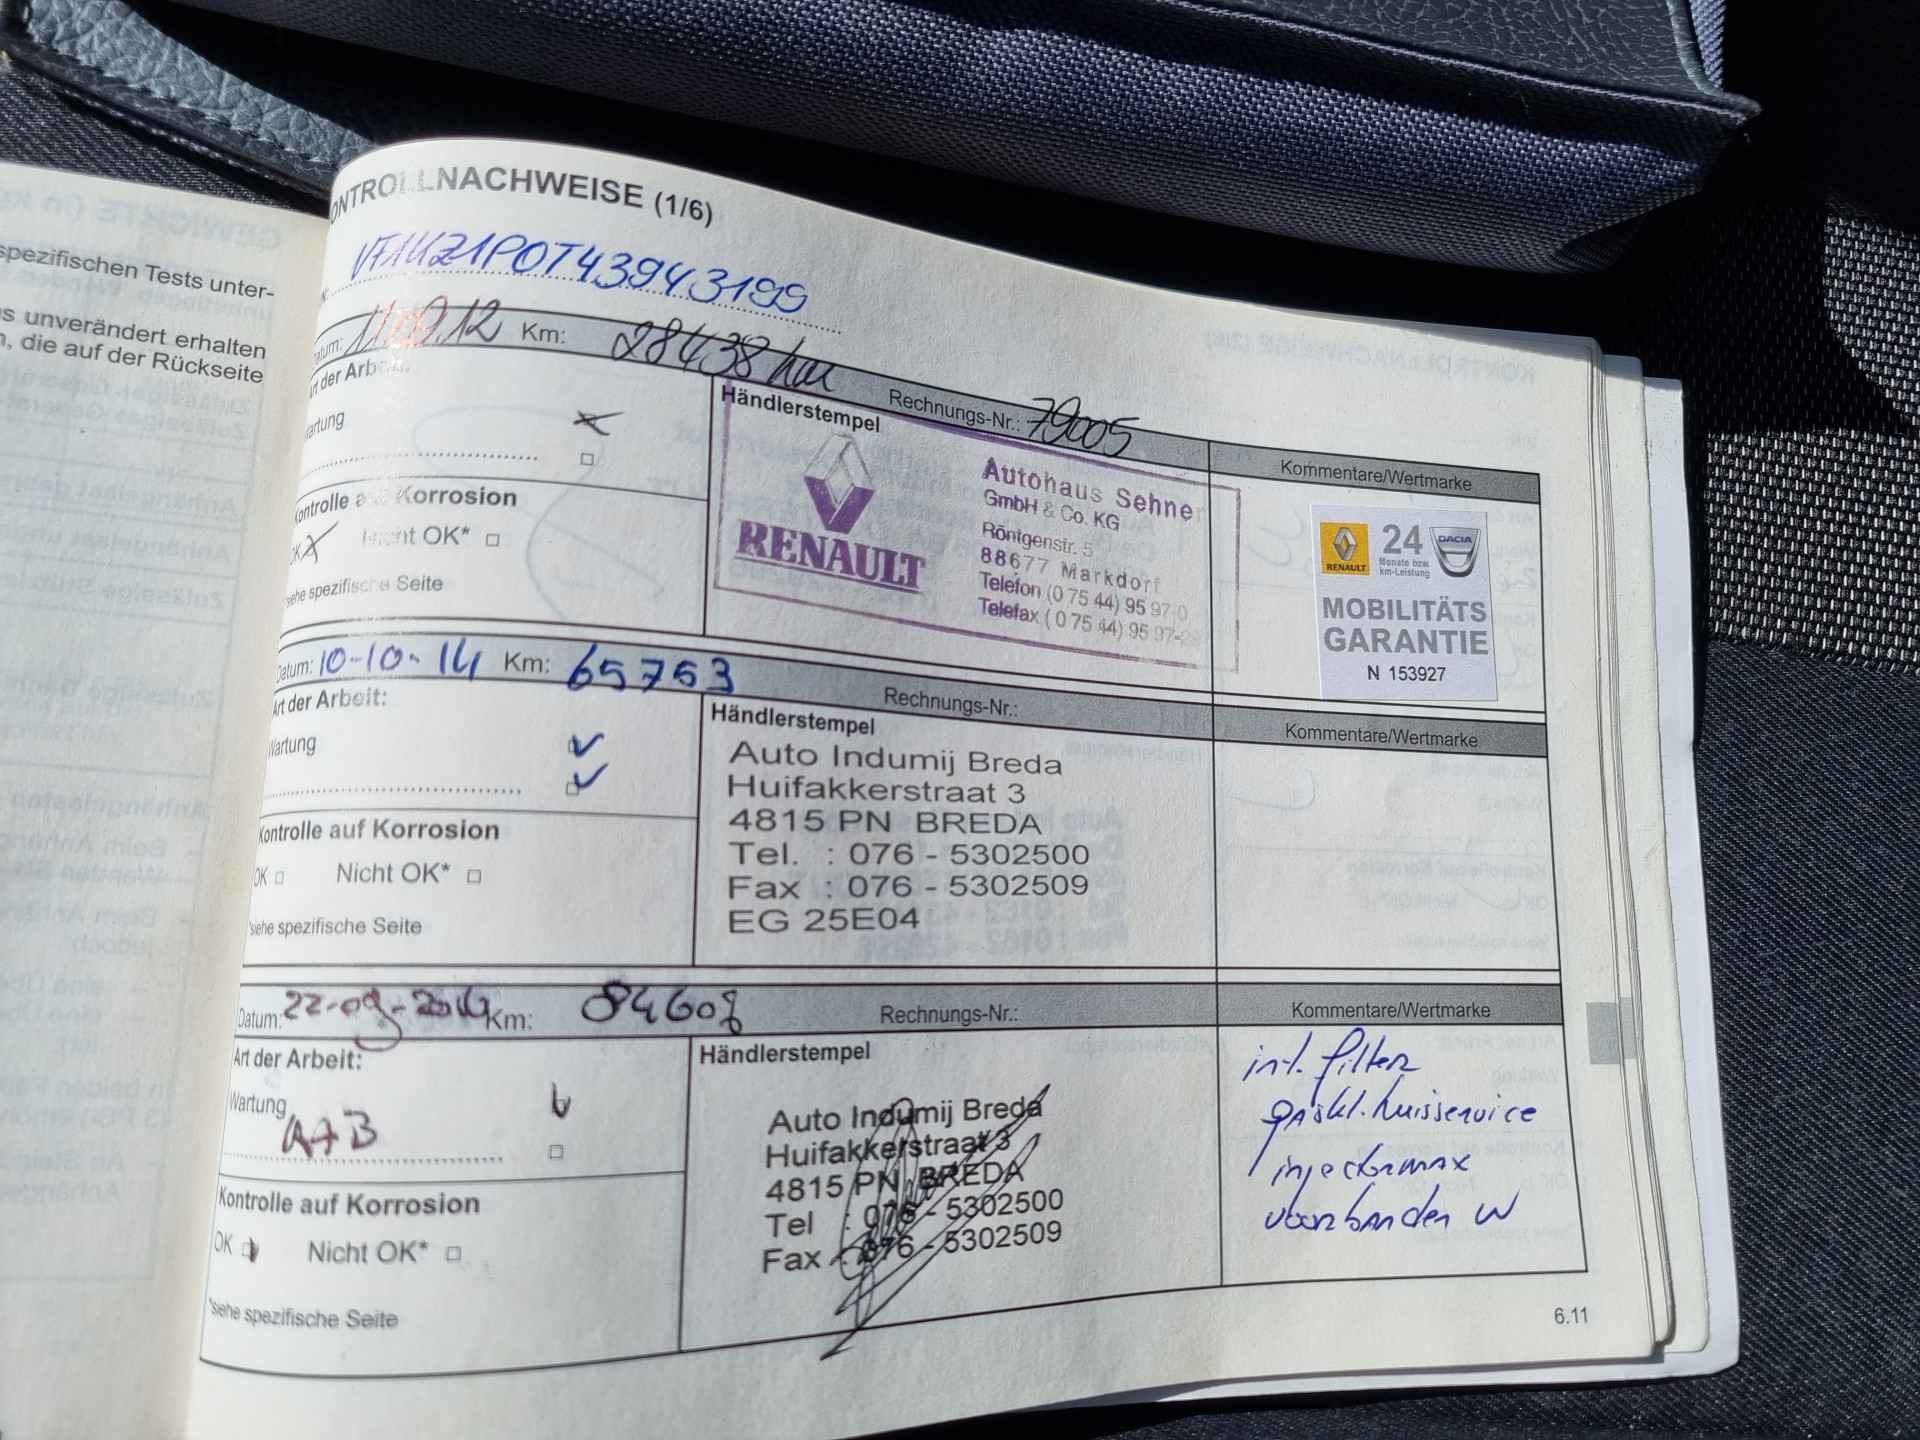 spezifischen Tests unter-
s unverändert erhalten
n, die auf der Rückseite
ONTROLLNACHWEISE (1/6)
VF1UZ1P0T43943199
Datum: 11.09.12 Km: 28438 km Rechnungs-Nr.: 79005
Art der Arbeit:
Wartung
Kontrolle auf Korrosion
OK Nicht OK*
*siehe spezifische Seite
Händlerstempel
RENAULT
Autohaus Sehner
GmbH & Co. KG
Röntgenstr. 5
88677 Markdorf
Telefon (0 75 44) 95 97-0
Telefax ( 0 75 44) 95 97-
Kommentare/Wertmarke
RENAULT
24
Monate bzw.
km-Leistung
DACIA
MOBILITÄTS
GARANTIE
N 153927
Datum: 10-10-14 Km: 65753 Rechnungs-Nr.:
Art der Arbeit:
Wartung
Kontrolle auf Korrosion
OK Nicht OK*
*siehe spezifische Seite
Händlerstempel
Auto Indumij Breda
Huifakkerstraat 3
4815 PN BREDA
Tel. : 076 - 5302500
Fax : 076 - 5302509
EG 25E04
Kommentare/Wertmarke
Datum: 22-09-2016 Km: 84608 Rechnungs-Nr.:
Art der Arbeit:
Wartung
A+B
Kontrolle auf Korrosion
OK Nicht OK*
*siehe spezifische Seite
Händlerstempel
Auto Indumij Breda
Huifakkerstraat 3
4815 PN BREDA
Tel : 076 - 5302500
Fax : 076 - 5302509
Kommentare/Wertmarke
int. filter
huisservice
injectormax
voorbanden W
6.11